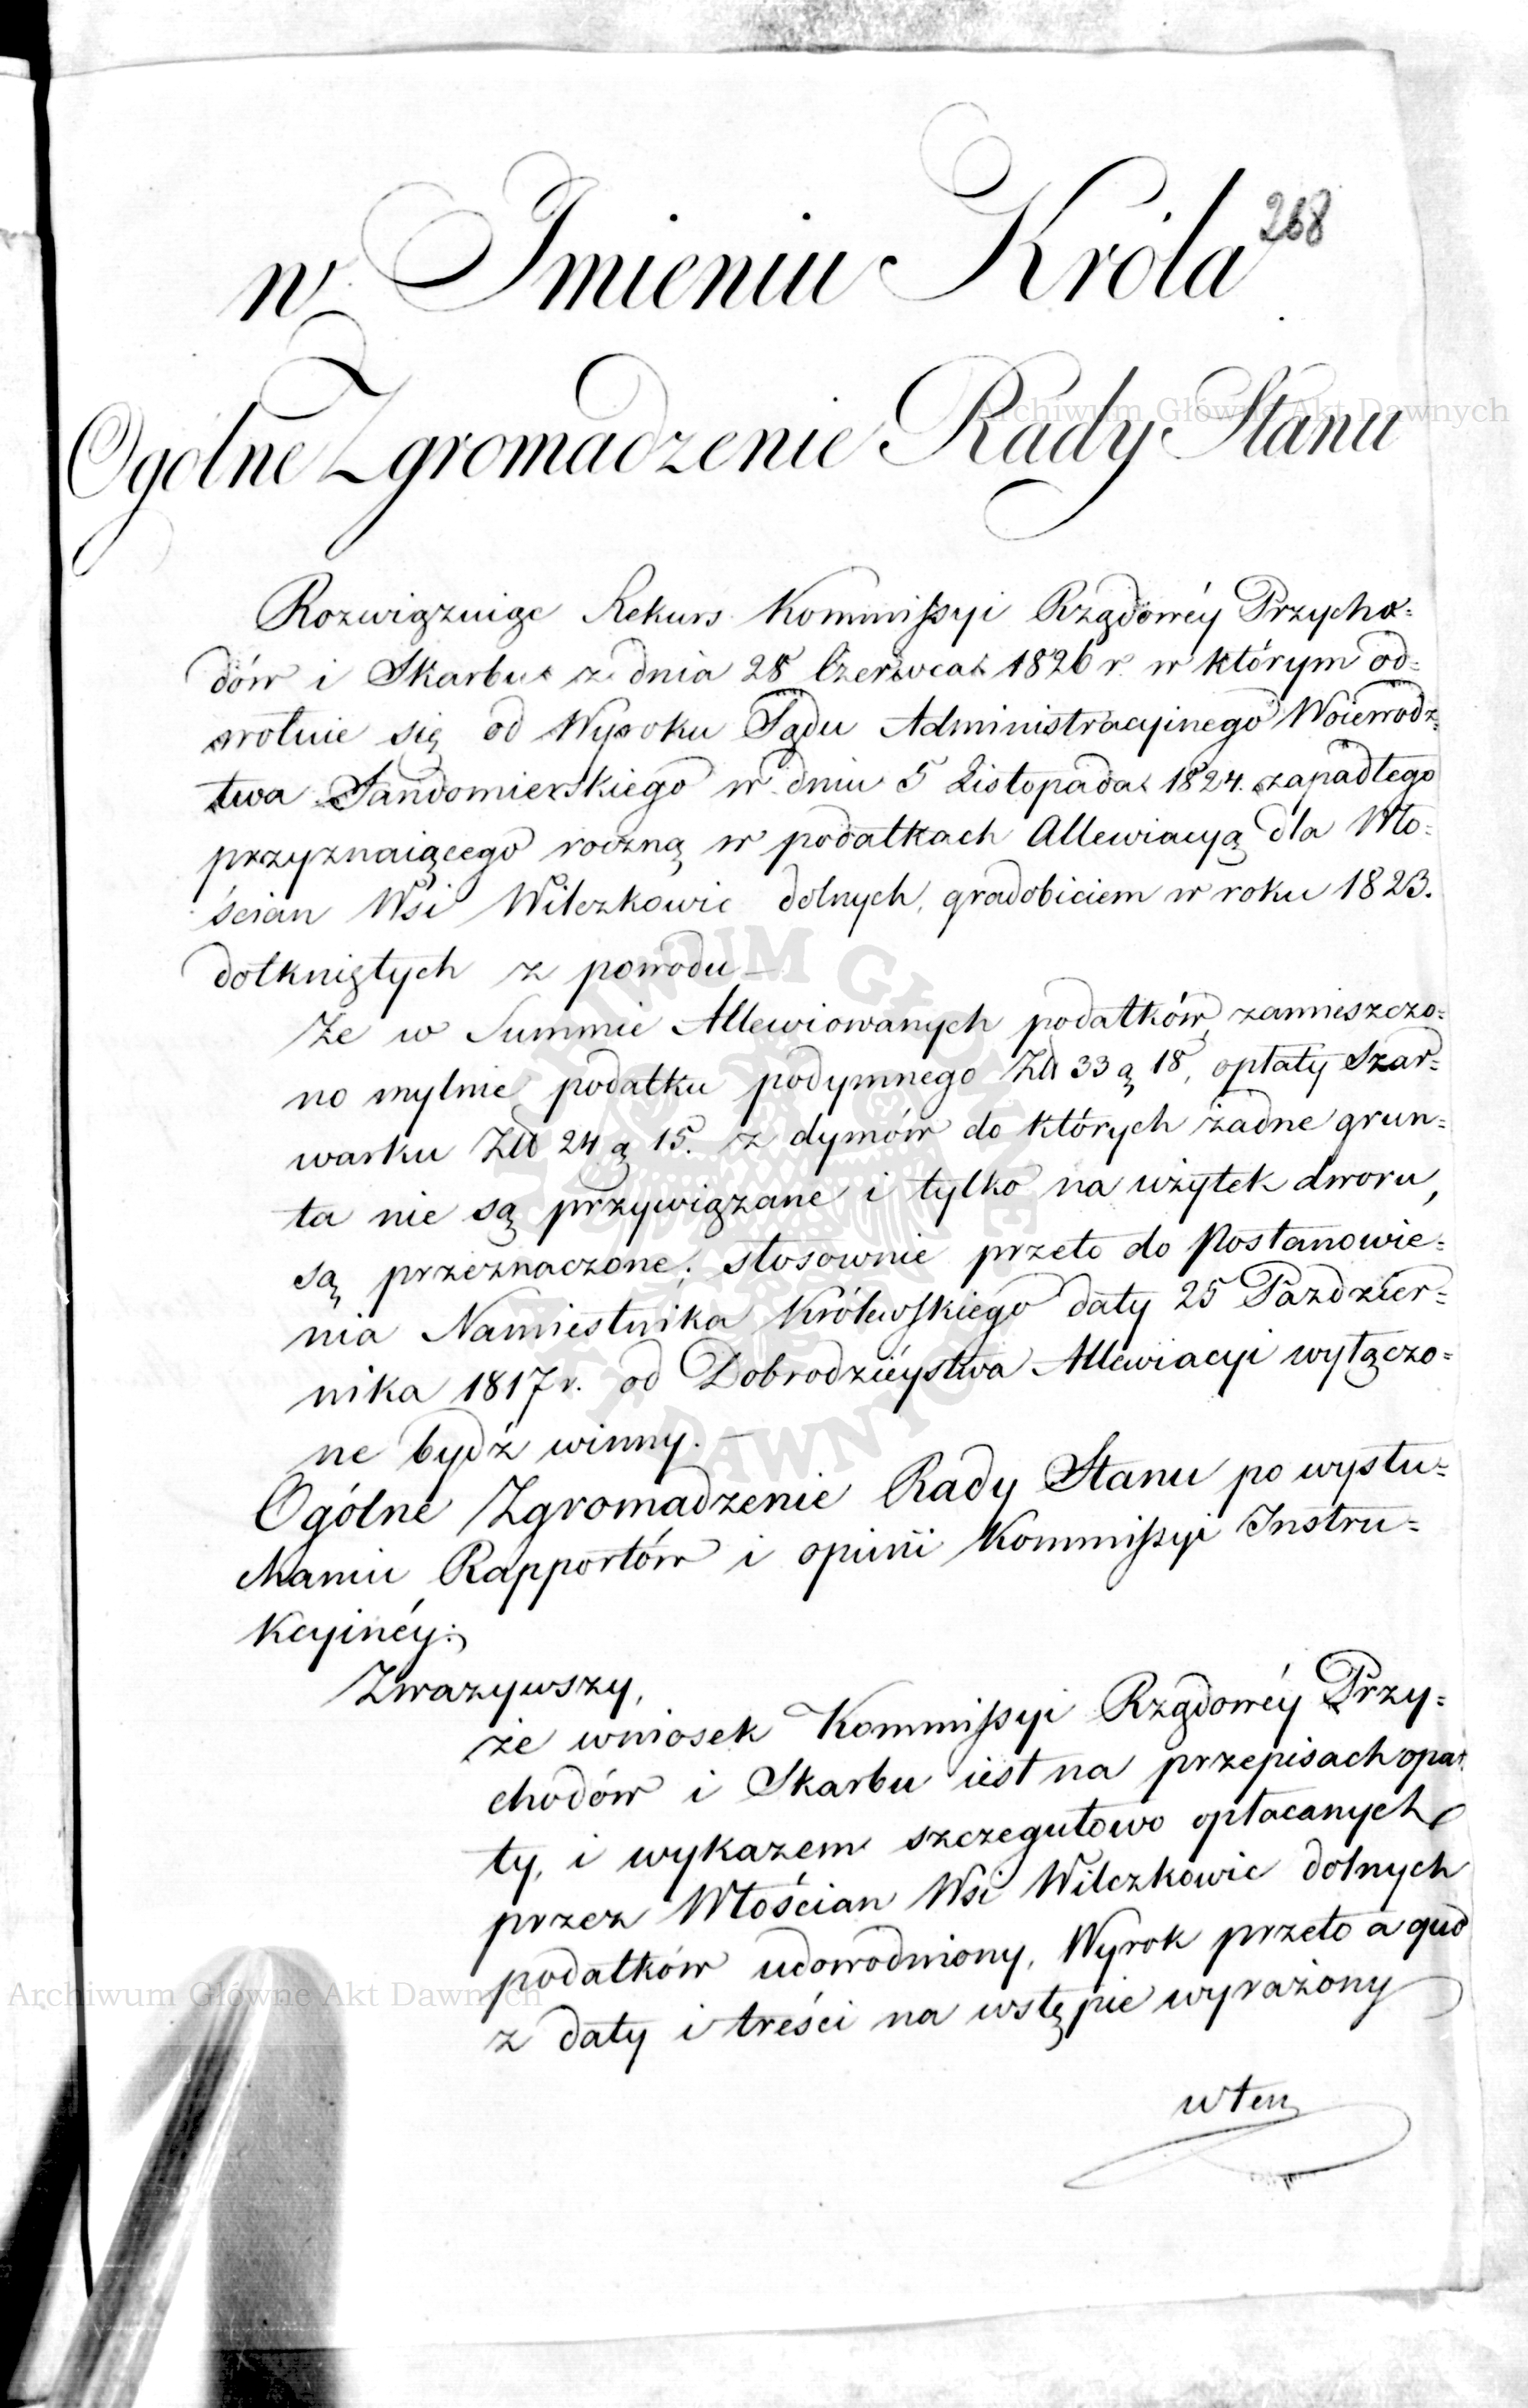 268
w Imieniu Króla
Ogólne Zgromadzenie Rady Stanu
Rozwiązuiąc Rekurs Kommissyi Rządowéy Przycho=
dów i Skarbu z dnia 28 Czerwca 1826 r. w którym od=
wołuie się od Wyroku Sądu Administracyinego Woiewodz=
twa Sandomierskiego w dniu 5 Listopada 1824. zapadłego
przyznaiącego roczną w podatkach Allewiacyą dla Wło=
ścian Wsi Wilczkowic dolnych, gradobiciem w roku 1823.
dotkniętych z powodu —
Że w Summie Allewiowanych podatków, zamieszczo=
no mylnie podatku podymnego Zł 33 g 18, opłaty Szar=
warku Zł 24 g 15. z dymów do których żadne grun=
ta nie są przywiązane i tylko na użytek dworu,
są przeznaczone; stosownie przeto do Postanowie=
nia Namiestnika Królewskiego daty 25 Pazdzier=
nika 1817 r. od Dobrodzieystwa Allewiacyi wyłączo=
ne bydź winny. —
Ogólne Zgromadzenie Rady Stanu po wysłu=
chaniu Rapportów i opinii Kommissyi Instru=
kcyinéy:
Zważywszy,
że wniosek Kommissyi Rządowéy Przy=
chodów i Skarbu iest na przepisach opar
ty, i wykazem szczegułowo opłacanych
przez Włościan Wsi Wilczkowic dolnych
podatków udowodniony, Wyrok przeto a quo
z daty i treści na wstępie wyrażony
w ten
Archiwum Główne Akt Dawnych
Archiwum Główne Akt Dawnych
ARCHIWUM GŁÓWNE AKT DAWNYCH